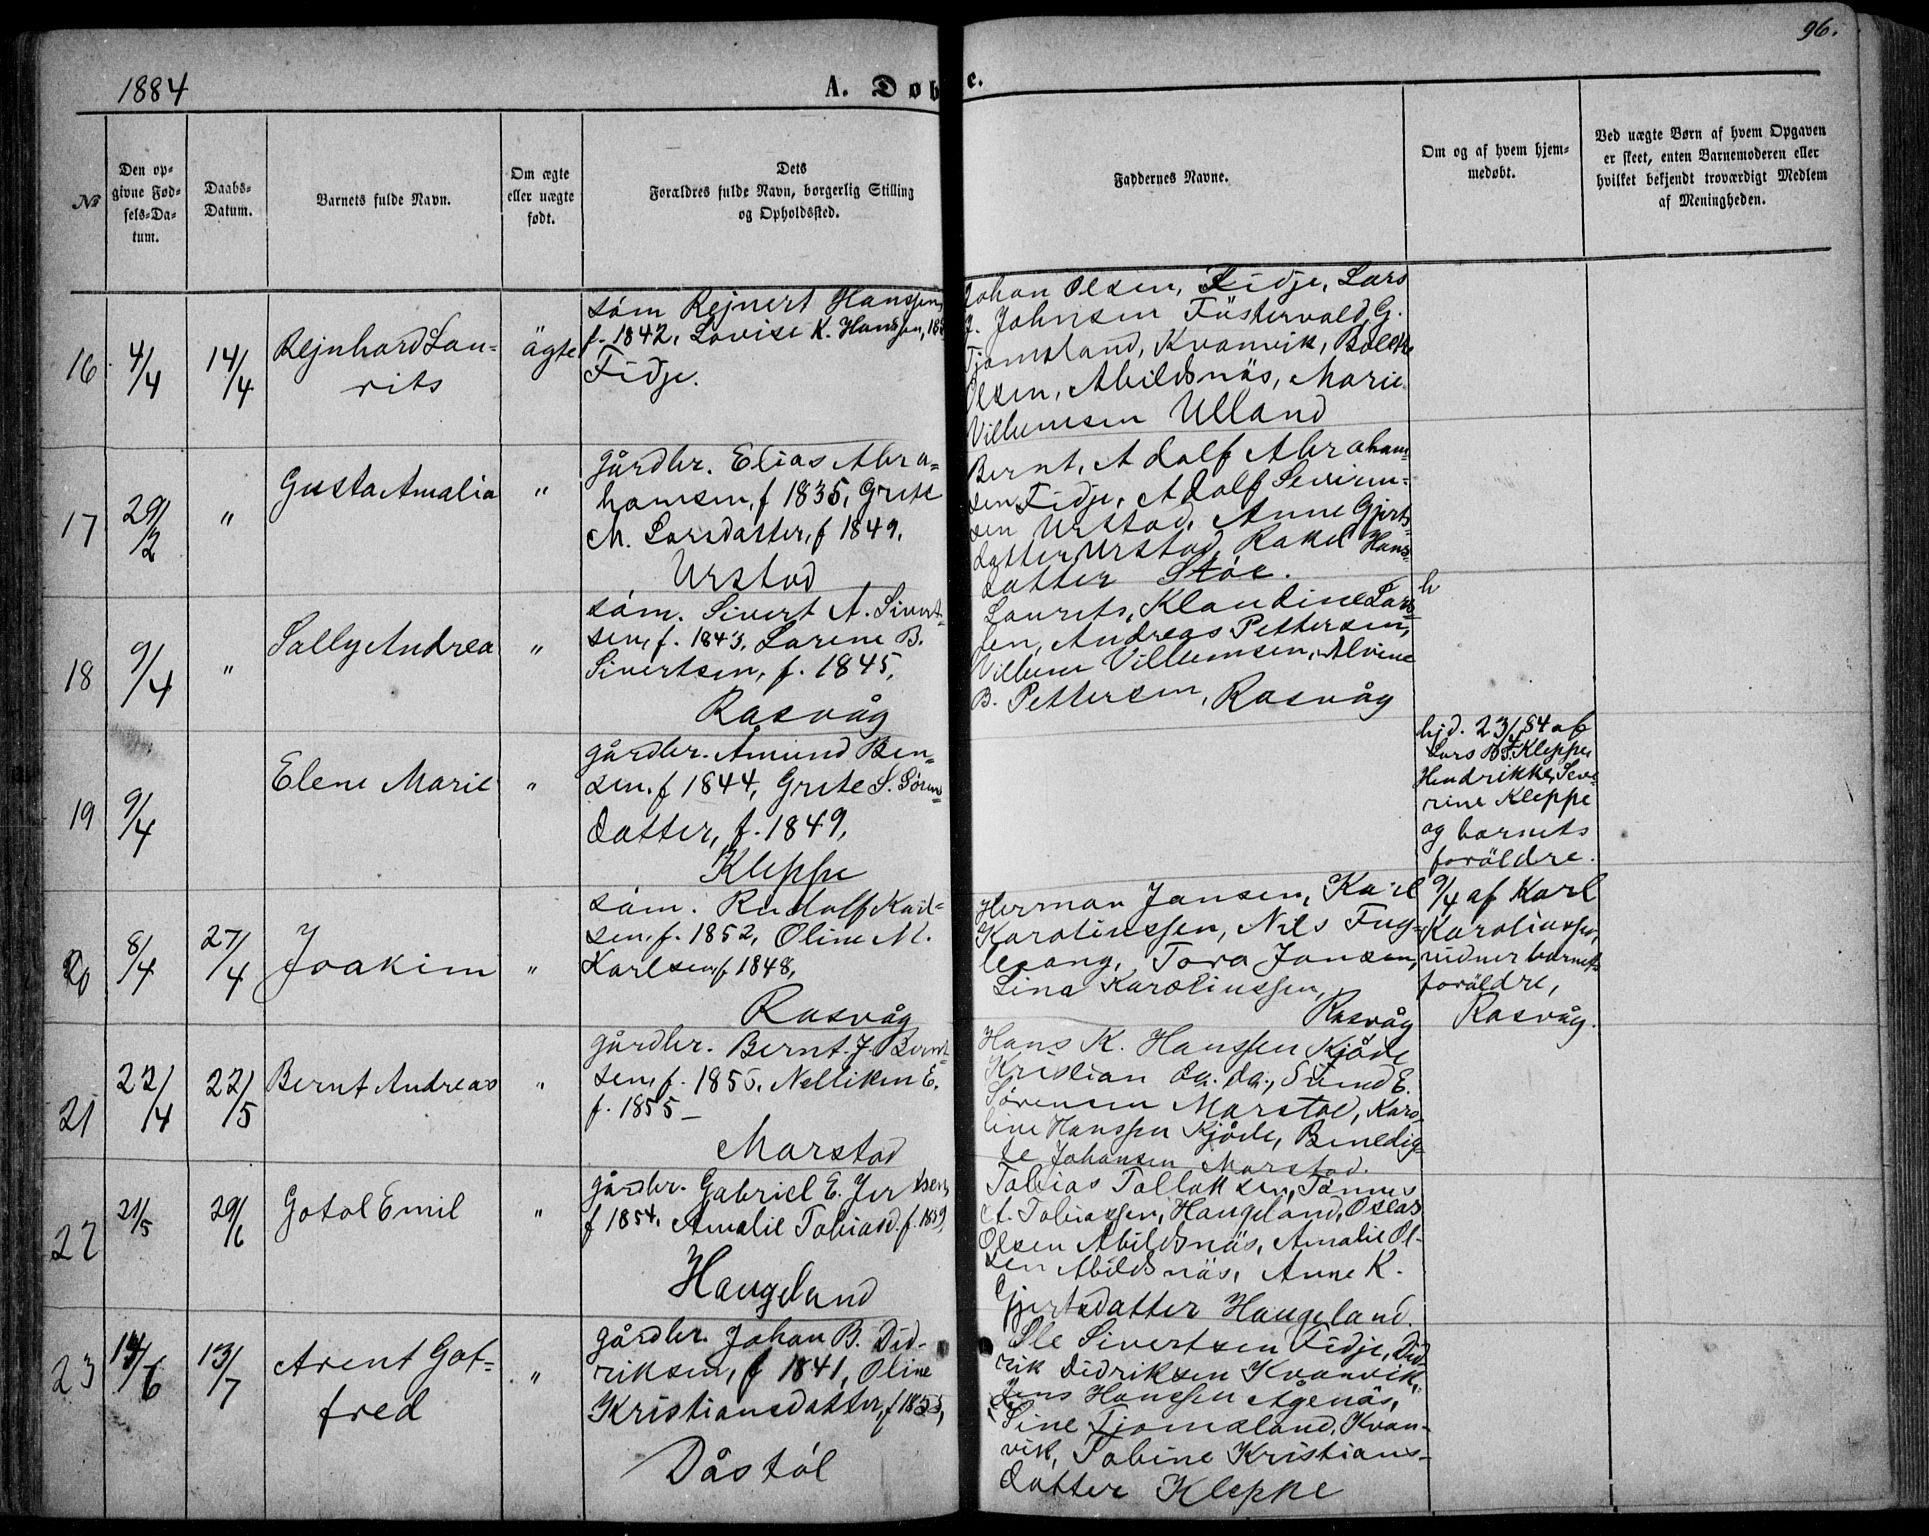 96.
1884
A. Døbte.
No
Den op-
givne Fød-
sels-Da-
tum.
Daabs-
Datum.
Barnets fulde Navn.
Om ægte
eller uægte
født.
Dets
Forældres fulde Navn, borgerlig Stilling
og Opholdssted.
Faddernes Navne.
Om og af hvem hjem-
medøbt.
Ved uægte Børn af hvem Opgaven
er skeet, enten Barnemoderen eller
hvilket bekjendt troværdigt Medlem
af Meningheden.
16
4/4
14/4
Rejnhard Lau-
rits
ägte
søm Rejnert Hanssen,
f. 1842, Lovise K. Hanssen,
Fidje.
Johan Olsen, Fidje, Lars
J. Johnsen Füstervold, G.
Tjomsland, Kvanvik, Bolette
Olsen, Abildsnäs, Marie
Villumsen Ulland
17
29/2
"
Gusta Amalia
"
gårdbr. Elias Abra=
hamsen, f 1835, Grete
M. Larsdatter, f 1849.
Urstad
Bernt, Adolf Abraham=
sen Fidje, Adolf Severin=
sen Urstad, Anne Gjerts=
datter Urstad, Rakel Hans=
datter Støe.
18
9/4
"
Sally Andrea
"
søm. Sivert A. Sivert=
sen, f. 1843, Larene B.
Sivertsen, f. 1845,
Rasvåg
Laurits, Klaudine Lars=
sen, Andreas Pettersen,
Villum Villumsen, Alvine
B. Pettersen, Rasvåg
h
19
9/4
Elene Marie
"
gårdbr. Åmund Ben=
sen, f 1844, Grete S. Sørens=
datter, f. 1849,
Kleppe
hjd. 23/4 84 af
Lars B. Kleppe,
Hendrikke Seve
rine Kleppe
og barnets
foräldre.
20
8/4
27/4
Joakim
"
søm. Rudolf Karl=
sen, f. 1852, Oline M.
Karlsen, f 1848,
Rasvåg
Herman Jansen, Karl
Karolinssen, Nils Fug=
lesang, Tora Jansen,
Lina Karolinssen,
Rasvåg
9/4 af Karl
Karolinssen,
vidner barnets
foräldre,
Rasvåg.
21
22/4
22/5
Bernt Andreas
"
gårdbr. Bernt J. Bernt=
sen, f. 1855, Nelliken E.
f. 1855 –
Marstad
Hans K. Hanssen Kjöde
Kristian da. da., Sünd E.
Sørensen Marstad, Karo
line Hanssen Kjøde, Benedig=
te Johansen Marstad.
22
21/5
29/6
Gotol Emil
"
gårdbr. Gabriel E. Jertsen,
f 1854, Amalie Tobiasd. f. 1859,
Haugeland
Tobias Tollaksen, Tønnes
A. Tobiassen, Haugeland, Oseas
Olsen Abildsnäs, Amalie Ol-
sen Abildsnäs, Anne K.
Gjertsdatter Haugeland.
23
14/6
13/7
Arent Got=
fred
"
gårdbr. Johan B. Did-
riksen, f 1841, Oline
Kristiansdatter, f 1855,
Dåstøl
Ole Sivertsen Fidje, Did-
rik Didriksen Kvanvik,
Jens Hanssen Ågenäs,
Sine Tjomsland, Kvan-
vik, Tobine Kristians-
datter Kleppe